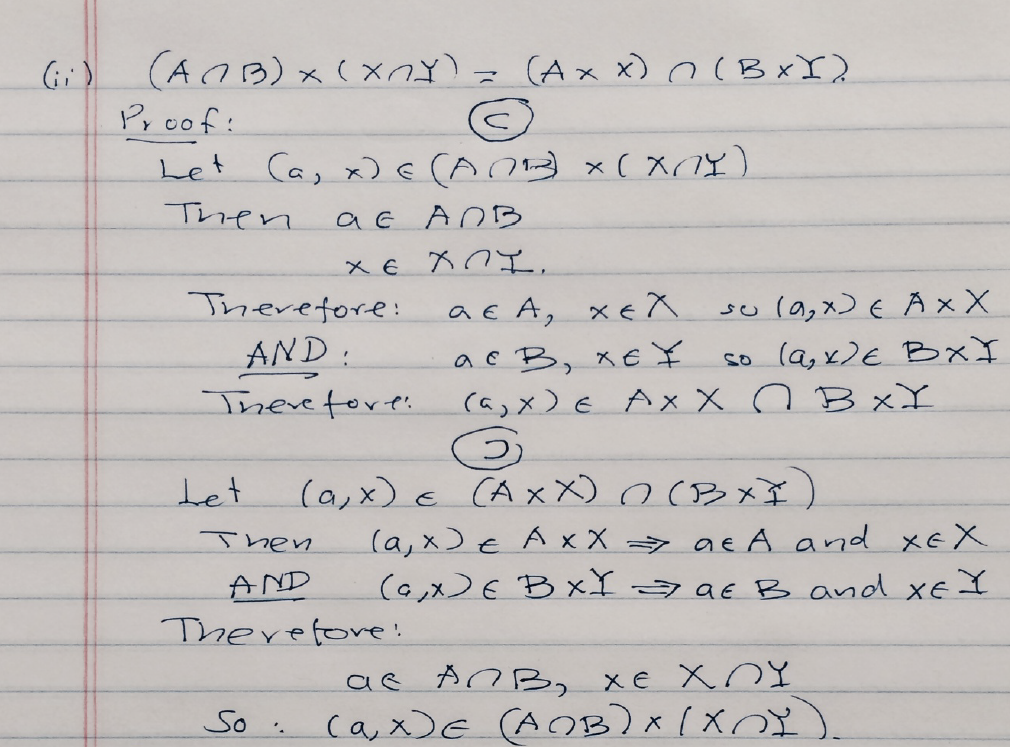 (ii) (A∩B) × (X∩Y) = (A × X) ∩ (B×Y).
Proof:
⊂
Let (a, x) ∈ (A∩B) × (X∩Y)
Then a ∈ A∩B
x ∈ X∩Y.
Therefore: a ∈ A, x∈X so (a,x) ∈ A×X
AND: a ∈ B, x∈Y so (a,x)∈ B×Y
Therefore: (a,x) ∈ A×X ∩ B×Y
⊃
Let (a,x) ∈ (A×X) ∩ (B×Y)
Then (a,x) ∈ A×X ⇒ a∈A and x∈X
AND (a,x)∈ B×Y ⇒ a∈B and x∈Y
Therefore:
a∈ A∩B, x∈ X∩Y
So: (a,x)∈ (A∩B)×(X∩Y).